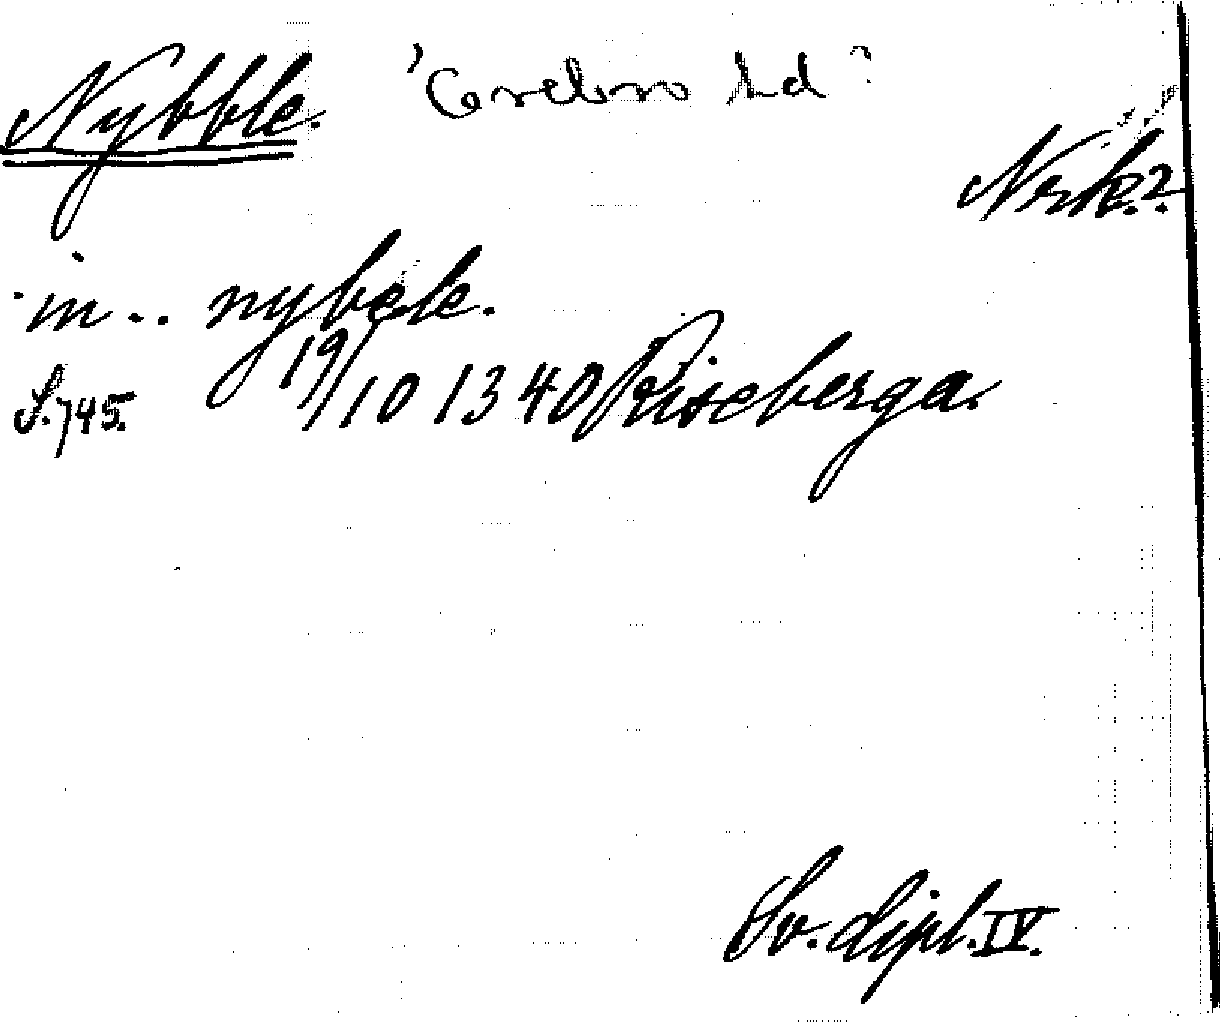 Nybble. Örebro hd?
Nrk.?
in.. nybele.
S. 745. 19/10 1340 Riseberga.
Sv. dipl. IV.